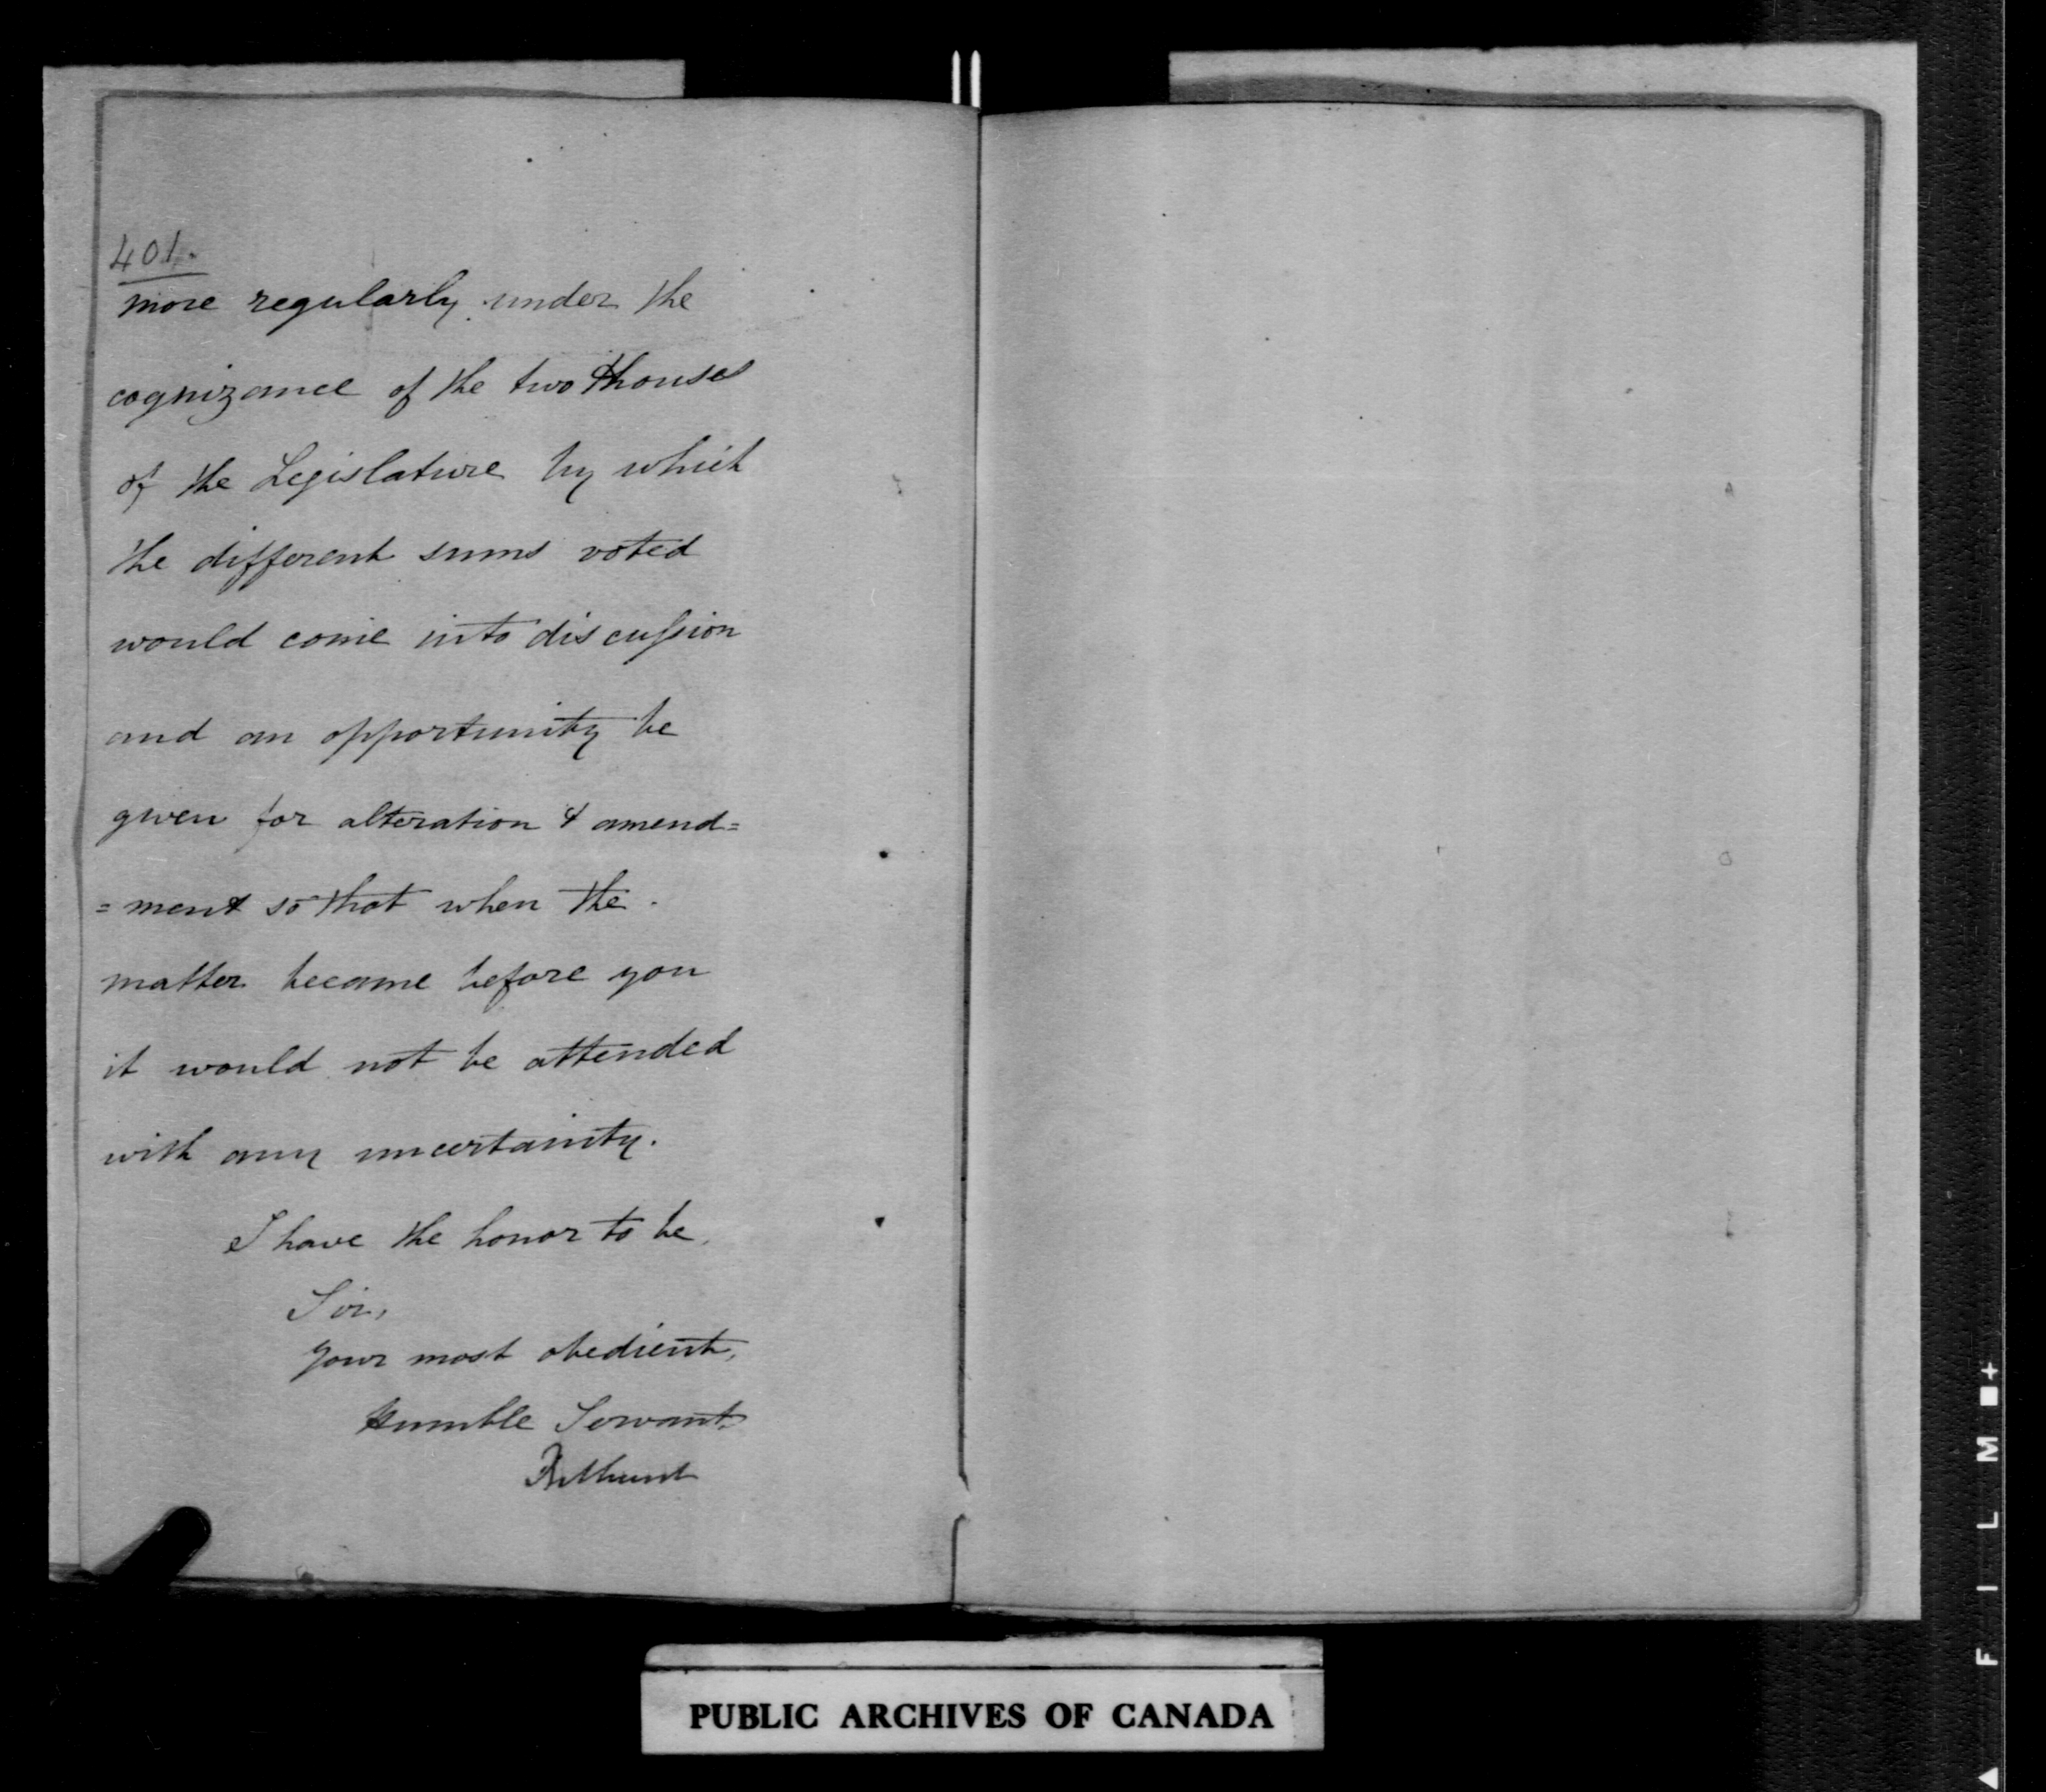 401.
more regularly under the
cognizance of the two houses
of the Legislature by which
the different sums voted
would come into discussion
and an opportunity be
given for alteration & amend=
=ment so that when the
matter became before you
it would not be attended
with any uncertainty.
I have the honor to be,
Sir,
your most obedient,
Humble Servant
Bathurst
PUBLIC ARCHIVES OF CANADA
FILM